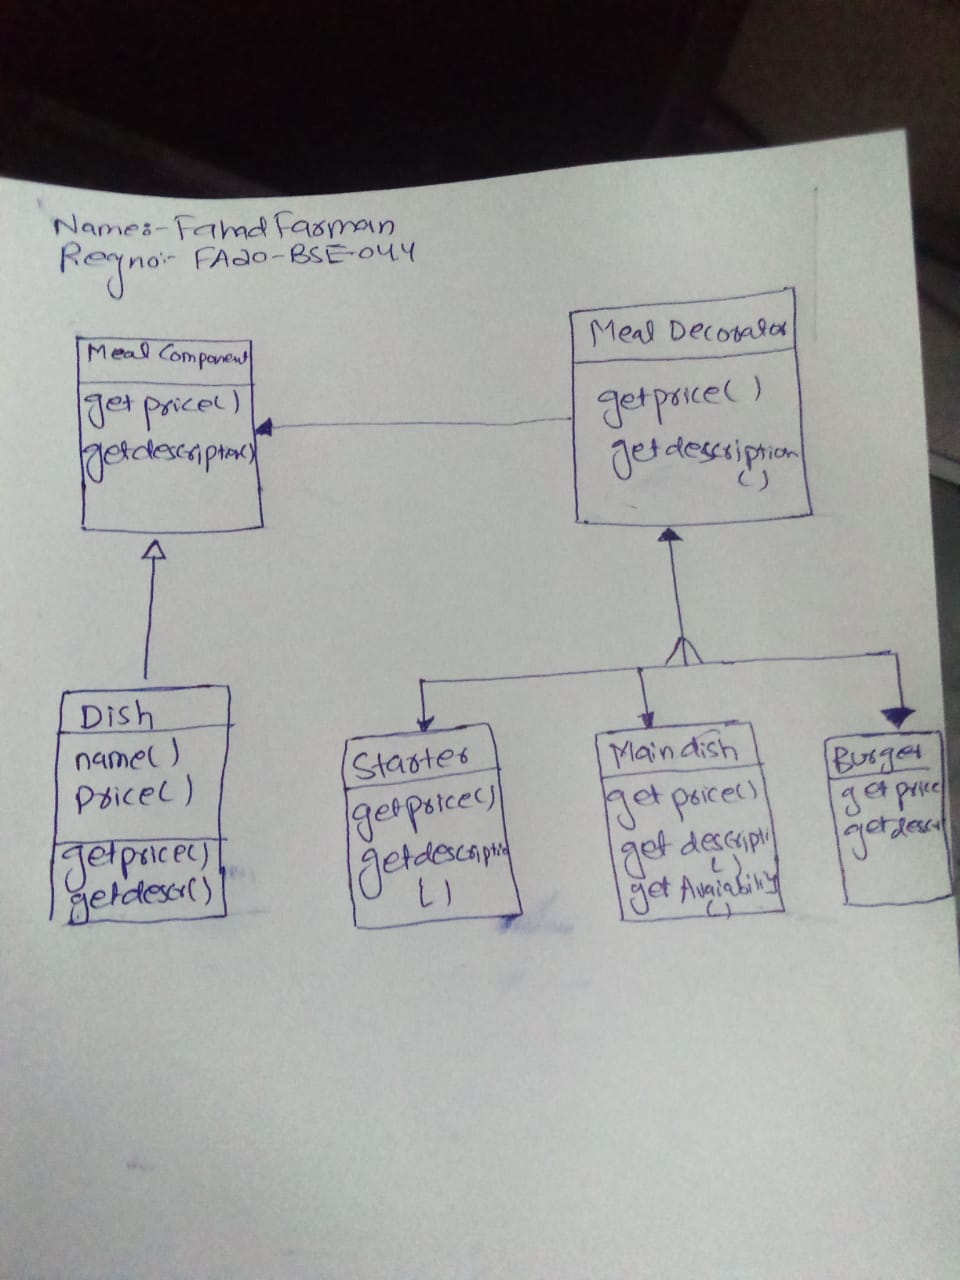 Name:- Fahad Farman
Regno:- FA20-BSE-044
Meal Component
getprice()
getdescription()
Meal Decorator
getprice()
getdescription
()
Dish
name()
Price()
getprice()
getdescr()
Starter
getprice()
getdescriptio
()
Main dish
get price()
get descripti
()
get Avaiability
()
Burger
getprice
getdescr